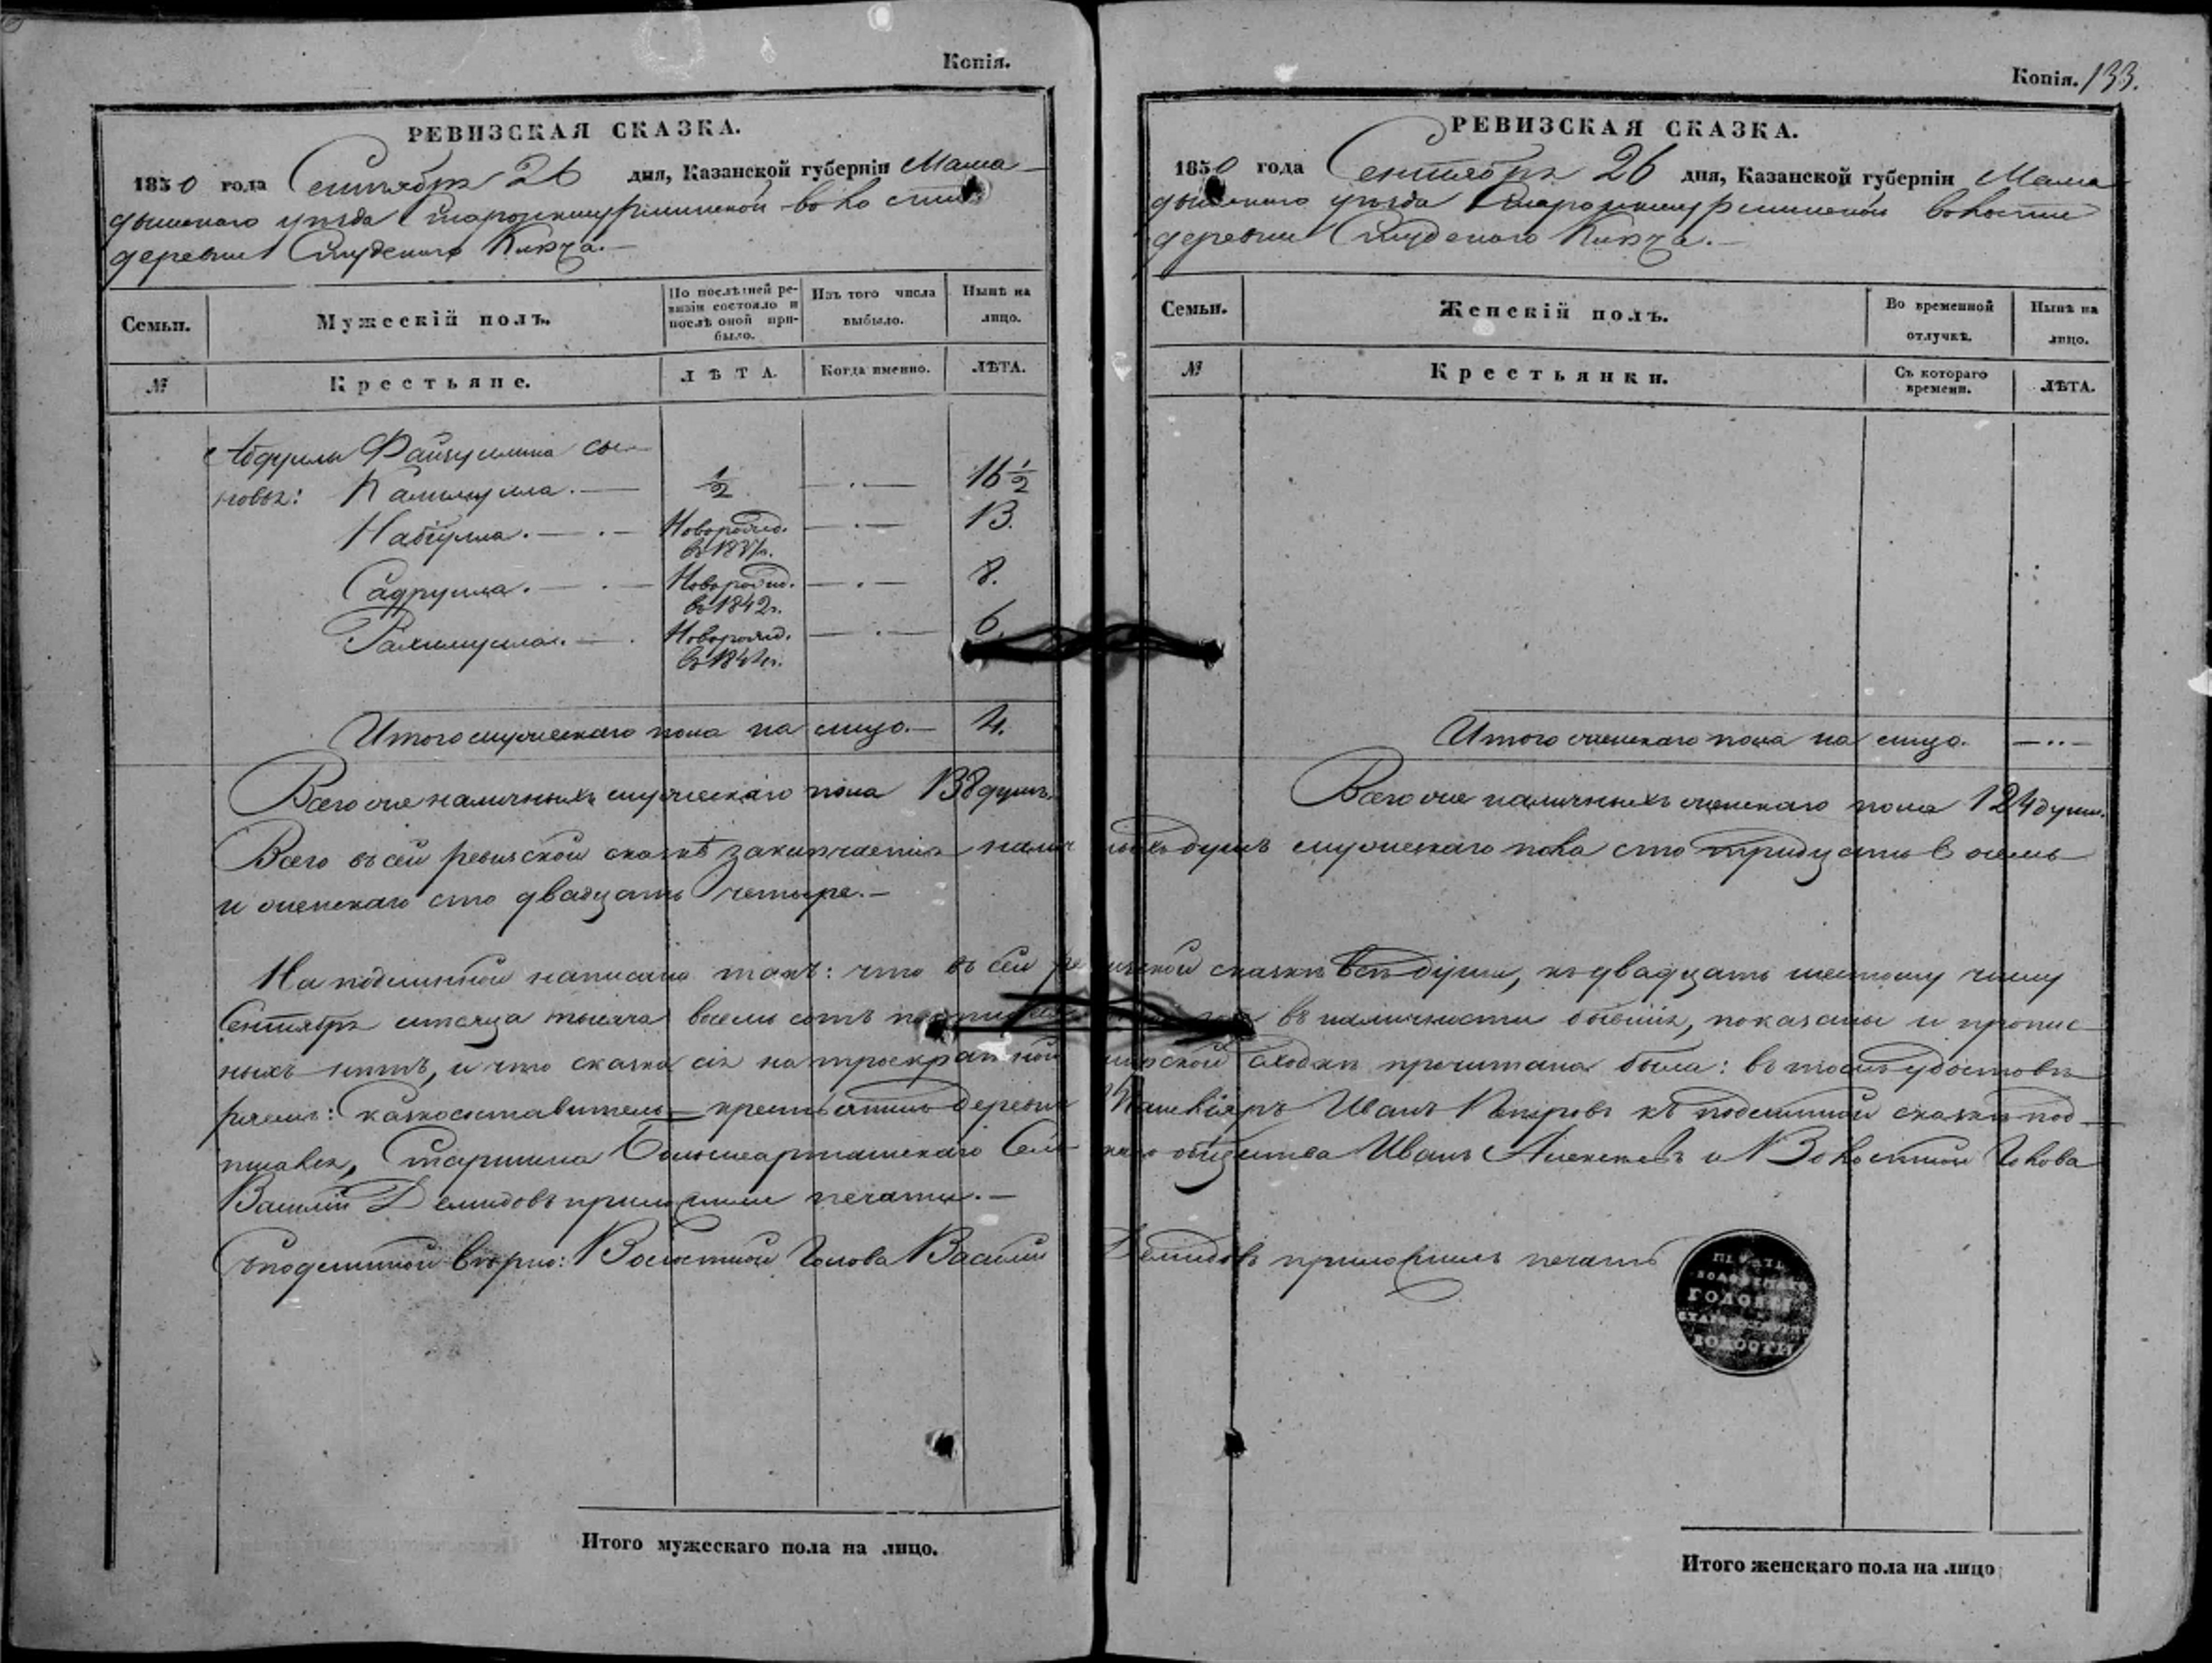 Копія.
РЕВИЗСКАЯ СКАЗКА.
1850 года Сентября 26 дня, Казанской губерніи Мама-
дышскаго уѣзда волости
деревни Студенаго Ключа.—
Семьи.
Мужескій полъ.
По послѣдней ре-
визіи состояло и
послѣ оной при-
было.
Изъ того числа
выбыло.
Нынѣ на
лицо.
№
Крестьяне.
ЛѢТА.
Когда именно.
ЛѢТА.
Абдуллы Файзуллина сы-
новья: ½ 16½
Набіулла. Новорожд. 13.
въ 1837г.
Садрулла. Новорожд. 8.
въ 1842г.
Рахимулла. Новорожд. 6.
въ 1844г.
Итого мужескаго пола на лицо.— 4.
Всего же наличныхъ мужескаго пола 138 душъ.
Всего въ сей ревизской сказкѣ заключается налич
и женскаго сто двадцать четыре.—
На подлинной написано такъ: что въ сей ре
Сентября мѣсяца тысяча восемь сотъ
ныхъ нѣтъ, и что сказка сія на троекратной
крестьянинъ деревни
Старшина Сель
Василій Демидовъ приложили печати.—
Съ подлинной вѣрно: Волостной Голова Василій
Итого мужескаго пола на лицо.
Копія. 133.
РЕВИЗСКАЯ СКАЗКА.
1850 года Сентября 26 дня, Казанской губерніи Мама
дышскаго уѣзда волости
деревни Студенаго Ключа.—
Семьи.
Женскій полъ.
Во временной
отлучкѣ.
Нынѣ на
лицо.
№
Крестьянки.
Съ котораго
времени.
ЛѢТА.
Итого женскаго пола на лицо.
Всего же наличныхъ женскаго пола 124 души.
ныхъ душъ мужескаго пола сто тридцать восемь
визской сказкѣ всѣ души, къ двадцать шестому числу
въ наличности бывшія, показаны и пропис-
мирской сходкѣ прочитана была: въ томъ удостовѣ
Иванъ Петровъ къ подлинной сказкѣ под-
скаго общества Иванъ Алексѣевъ и Волостной Голова
Демидовъ приложилъ печать
ПЕЧАТЬ
ВОЛОСТНАГО
ГОЛОВЫ
ВОЛОСТИ
Итого женскаго пола на лицо